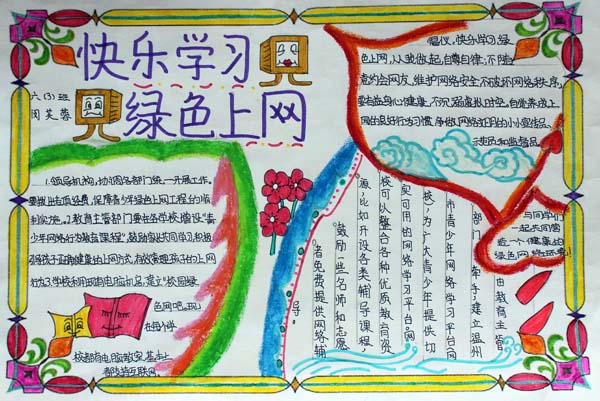 快乐学习
绿色上网
六(3)班
闵芙蓉
倡仪,快乐学习,绿
色上网,从我做起,自尊自律,不随
意约会网友,维护网络安全不破坏网络秩序,
要有益身心健康,不沉溺虚拟时空,自觉养成上
网的良好行为习惯,争做网络文明的小小宣传员、
示范员和监督员。
与同学们
一起共同营
造一个健康的
绿色网络环境!
1.领导机构,协调各部门统一开展工作。
要拨出专项经费,保障青少年绿色上网工程的顺
利实施。2.教育主管部门要在各学校增设“青
少年网络行为教育课程”,鼓励家长共同学习,积极
引孩子正确健康的上网方式,有效管理孩子的上网
行为3.学校利用现有电脑机房,建立“校园绿
色网吧。现
在每个学
校都有电脑教室,基本上
都支持互联网。
由教育主管
部门牵手,建立温州
市青少年网络学习平台网
校,为广大青少年提供切
实可用的网络学习平台。网
校可以整合各种优质教育资
源,比如开设各类辅导课程,
鼓励一些名师和志愿
者免费提供网络辅
导。